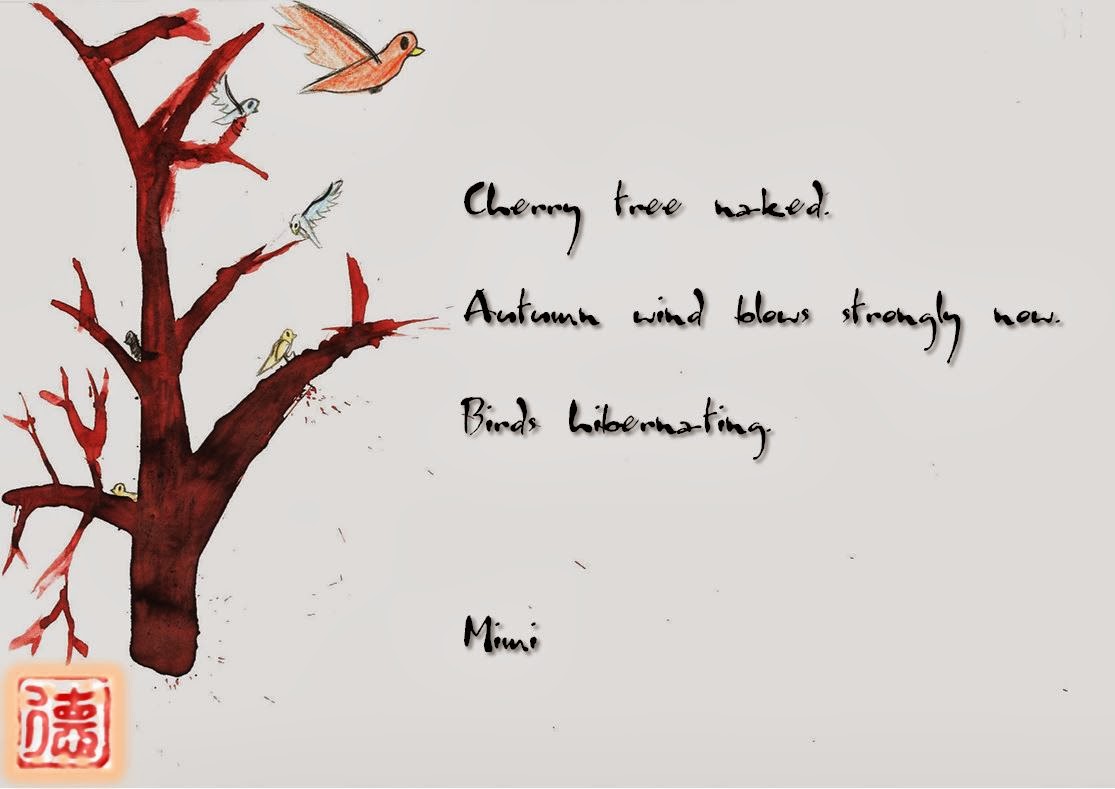 Cherry tree naked.
Autumn wind blows strongly now.
Birds hibernating.
Mimi
德